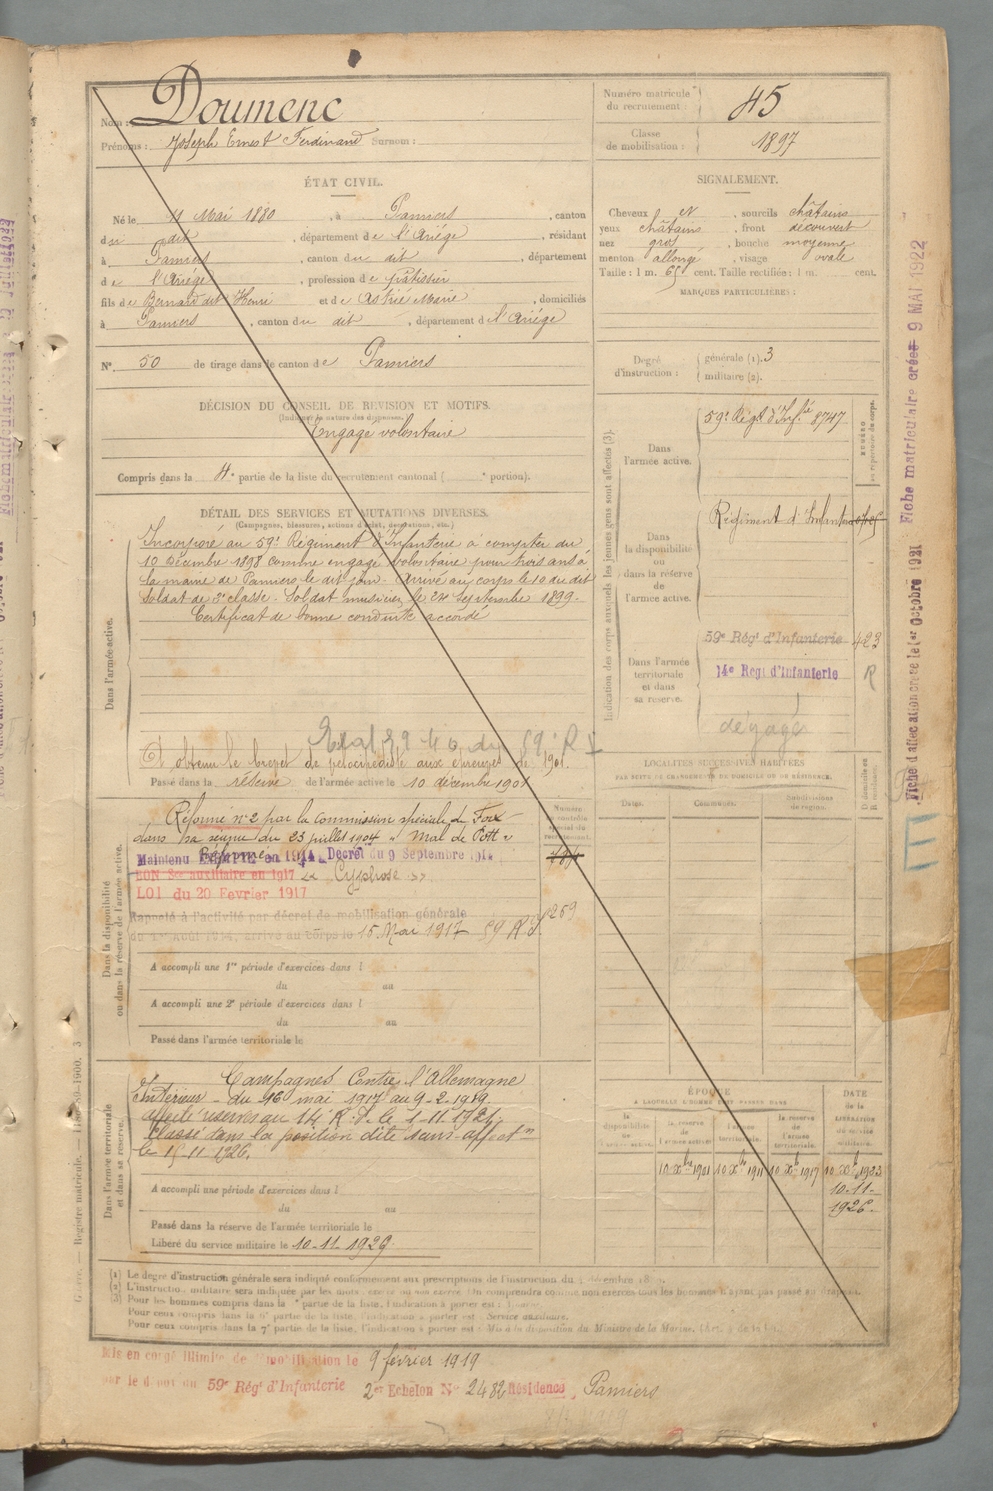 Nom : Doumenc
Prénoms : Joseph Ernest Ferdinand Surnom :
Numéro matricule du recrutement : 45
Classe de mobilisation : 1897
ÉTAT CIVIL.
Né le 11 Mai 1880, à Pamiers, canton
du dit, département de l'Ariége, résidant
à Pamiers, canton du dit, département
de l'Ariége, profession de pâtissier
fils de Bernard dit Henri et de Astrié Marie, domiciliés
à Pamiers, canton du dit, département de l'Ariége
N° 50 de tirage dans le canton de Pamiers
SIGNALEMENT.
Cheveux et, sourcils châtains
yeux châtains, front découvert
nez gros, bouche moyenne
menton allongé, visage ovale
Taille : 1 m. 65 cent. Taille rectifiée : 1 m. cent.
MARQUES PARTICULIÈRES :
Degré d'instruction : générale (1). 3
militaire (2).
DÉCISION DU CONSEIL DE REVISION ET MOTIFS.
(Indiquer la nature des dispenses.)
Engagé volontaire
Compris dans la 4e partie de la liste du recrutement cantonal ( e portion).
DÉTAIL DES SERVICES ET MUTATIONS DIVERSES.
(Campagnes, blessures, actions d'éclat, décorations, etc.)
Dans l'armée active.
Incorporé au 59e Régiment d'Infanterie à compter du
10 Décembre 1898 comme engagé volontaire pour trois ans à
la mairie de Pamiers le dit jour. Arrivé au corps le 10 du dit
Soldat de 2e classe. Soldat musicien le 24 Septembre 1899.
Certificat de bonne conduite accordé
59e R I
A obtenu le brevet de vélocipédiste aux épreuves de 1901.
Passé dans la réserve de l'armée active le 10 décembre 1901
Indication des corps auxquels les jeunes gens sont affectés (3).
NUMÉRO au répertoire du corps.
Dans l'armée active.
59e Régt d'Infie 8747
Dans la disponibilité ou dans la réserve de l'armée active.
Régiment d'Infanterie
Dans l'armée territoriale et dans sa réserve.
59e Régt d'Infanterie 423
14e Régt d'Infanterie R
dégagé
Dans la disponibilité ou dans la réserve de l'armée active.
Réformé n° 2 par la Commission spéciale de Foix
dans sa séance du 23 juillet 1904 « Mal de Pott »
Maintenu EXEMPTÉ en 1914 Décret du 9 Septembre 1914
BON Sce auxiliaire en 1917 « Cyphose »
LOI du 20 Fevrier 1917
Rappelé à l'activité par décret de mobilisation générale
du 1er Août 1914, arrivé au corps le 15 Mai 1917 59 R I
A accompli une 1re période d'exercices dans l
du au
A accompli une 2e période d'exercices dans l
du au
Passé dans l'armée territoriale le
LOCALITÉS SUCCESSIVES HABITÉES
PAR SUITE DE CHANGEMENT DE DOMICILE OU DE RÉSIDENCE.
Dates. Communes. Subdivisions de région. D. domicile ou R. résidence.
Dans l'armée territoriale et dans sa réserve.
Campagnes Contre l'Allemagne
Intérieur du 16 mai 1917 au 9-2-1919.
affecté réserves au 14e R. I. le 1-11-1921.
Classé dans la position dite sans-affectn
le 15-11-1926.
A accompli une période d'exercices dans l
du au
Passé dans la réserve de l'armée territoriale le
Libéré du service militaire le 10-11-1929
ÉPOQUE
À LAQUELLE L'HOMME DOIT PASSER DANS
la disponibilité de l'armée active.
la réserve de l'armée active.
l'armée territoriale.
la réserve de l'armée territoriale.
DATE de la LIBÉRATION du service militaire.
10 Xbre 1901 10 Xbre 1911 10 Xbre 1917 10 Xbre 1923
10-11-1926.
(1) Le degré d'instruction générale sera indiqué conformément aux prescriptions de l'instruction du
(2) L'instruction militaire sera indiquée par les mots : exercé ou non exercé. On comprendra comme non exercés tous les hommes n'ayant pas passé au drapeau.
(3) Pour les hommes compris dans la partie de la liste, l'indication à porter est :
Pour ceux compris dans la 6e partie de la liste, l'indication à porter est : Service auxiliaire.
Pour ceux compris dans la 7e partie de la liste, l'indication à porter est : Mis à la disposition du Ministre de la Marine.
Mis en congé illimité de démobilisation le 9 février 1919
par le dépôt du 59e Régt d'Infanterie 2er Echelon N° 2482 Résidence, Pamiers
Fiche matriculaire créée 9 MAI 1922
Fiche d'affectation créée le 1er octobre 1921